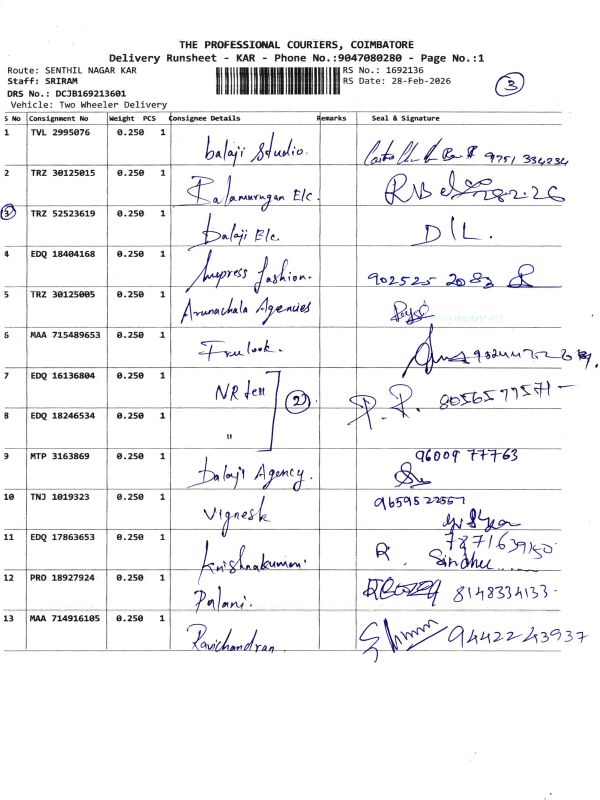 THE PROFESSIONAL COURIERS, COIMBATORE
Delivery Runsheet - KAR - Phone No.:9047080280 - Page No.:1
Route: SENTHIL NAGAR KAR RS No.: 1692136
Staff: SRIRAM RS Date: 28-Feb-2026
3
DRS No.: DCJB169213601
Vehicle: Two Wheeler Delivery
S No Consignment No Weight PCS Consignee Details Remarks Seal & Signature
1 TVL 2995076 0.250 1 balaji Studio. 9751 334234
2 TRZ 30125015 0.250 1 Balamurugan Elc.
3 TRZ 52523619 0.250 1 Balaji Elc. D/L.
4 EDQ 18404168 0.250 1 Impress fashion. 902525 2083
5 TRZ 30125005 0.250 1 Arunachala Agencies
6 MAA 715489653 0.250 1 Free look.
7 EDQ 16136804 0.250 1 NR tex 2 P. P. 8056577571
8 EDQ 18246534 0.250 1 "
9 MTP 3163869 0.250 1 Balaji Agency. 96009 77763
10 TNJ 1019323 0.250 1 Vignesh 9659522557
11 EDQ 17863653 0.250 1 Krishnakumari. R. Sindhu 7871639150
12 PRO 18927924 0.250 1 Palani. 8148334133
13 MAA 714916105 0.250 1 Ravichandran 94422 43937